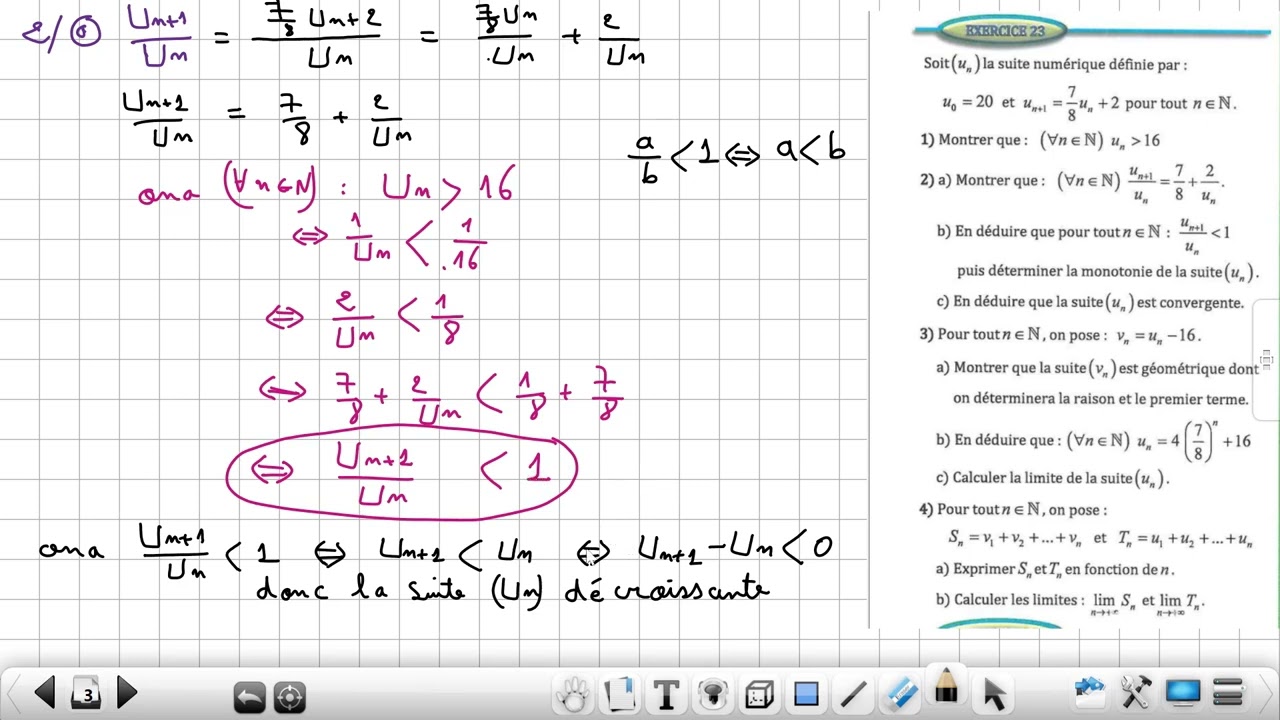 2/ a) Un+1/Un = (7/8 Un + 2)/Un = (7/8 Un)/Un + 2/Un
Un+1/Un = 7/8 + 2/Un
a/b < 1 ⇔ a < b
ona (∀n∈N) : Un > 16
⇔ 1/Un < 1/16
⇔ 2/Un < 1/8
⇔ 7/8 + 2/Un < 1/8 + 7/8
⇔ Un+1/Un < 1
ona Un+1/Un < 1 ⇔ Un+1 < Un ⇔ Un+1 − Un < 0
donc la suite (Un) décroissante
EXERCICE 23
Soit (un) la suite numérique définie par :
u0 = 20 et un+1 = 7/8 un + 2 pour tout n ∈ ℕ.
1) Montrer que : (∀n ∈ ℕ) un > 16
2) a) Montrer que : (∀n ∈ ℕ) un+1/un = 7/8 + 2/un.
b) En déduire que pour tout n ∈ ℕ : un+1/un < 1
puis déterminer la monotonie de la suite (un).
c) En déduire que la suite (un) est convergente.
3) Pour tout n ∈ ℕ, on pose : vn = un − 16.
a) Montrer que la suite (vn) est géométrique dont
on déterminera la raison et le premier terme.
b) En déduire que : (∀n ∈ ℕ) un = 4(7/8)^n + 16
c) Calculer la limite de la suite (un).
4) Pour tout n ∈ ℕ, on pose :
Sn = v1 + v2 + ... + vn et Tn = u1 + u2 + ... + un
a) Exprimer Sn et Tn en fonction de n.
b) Calculer les limites : lim n→+∞ Sn et lim n→+∞ Tn.
3
T